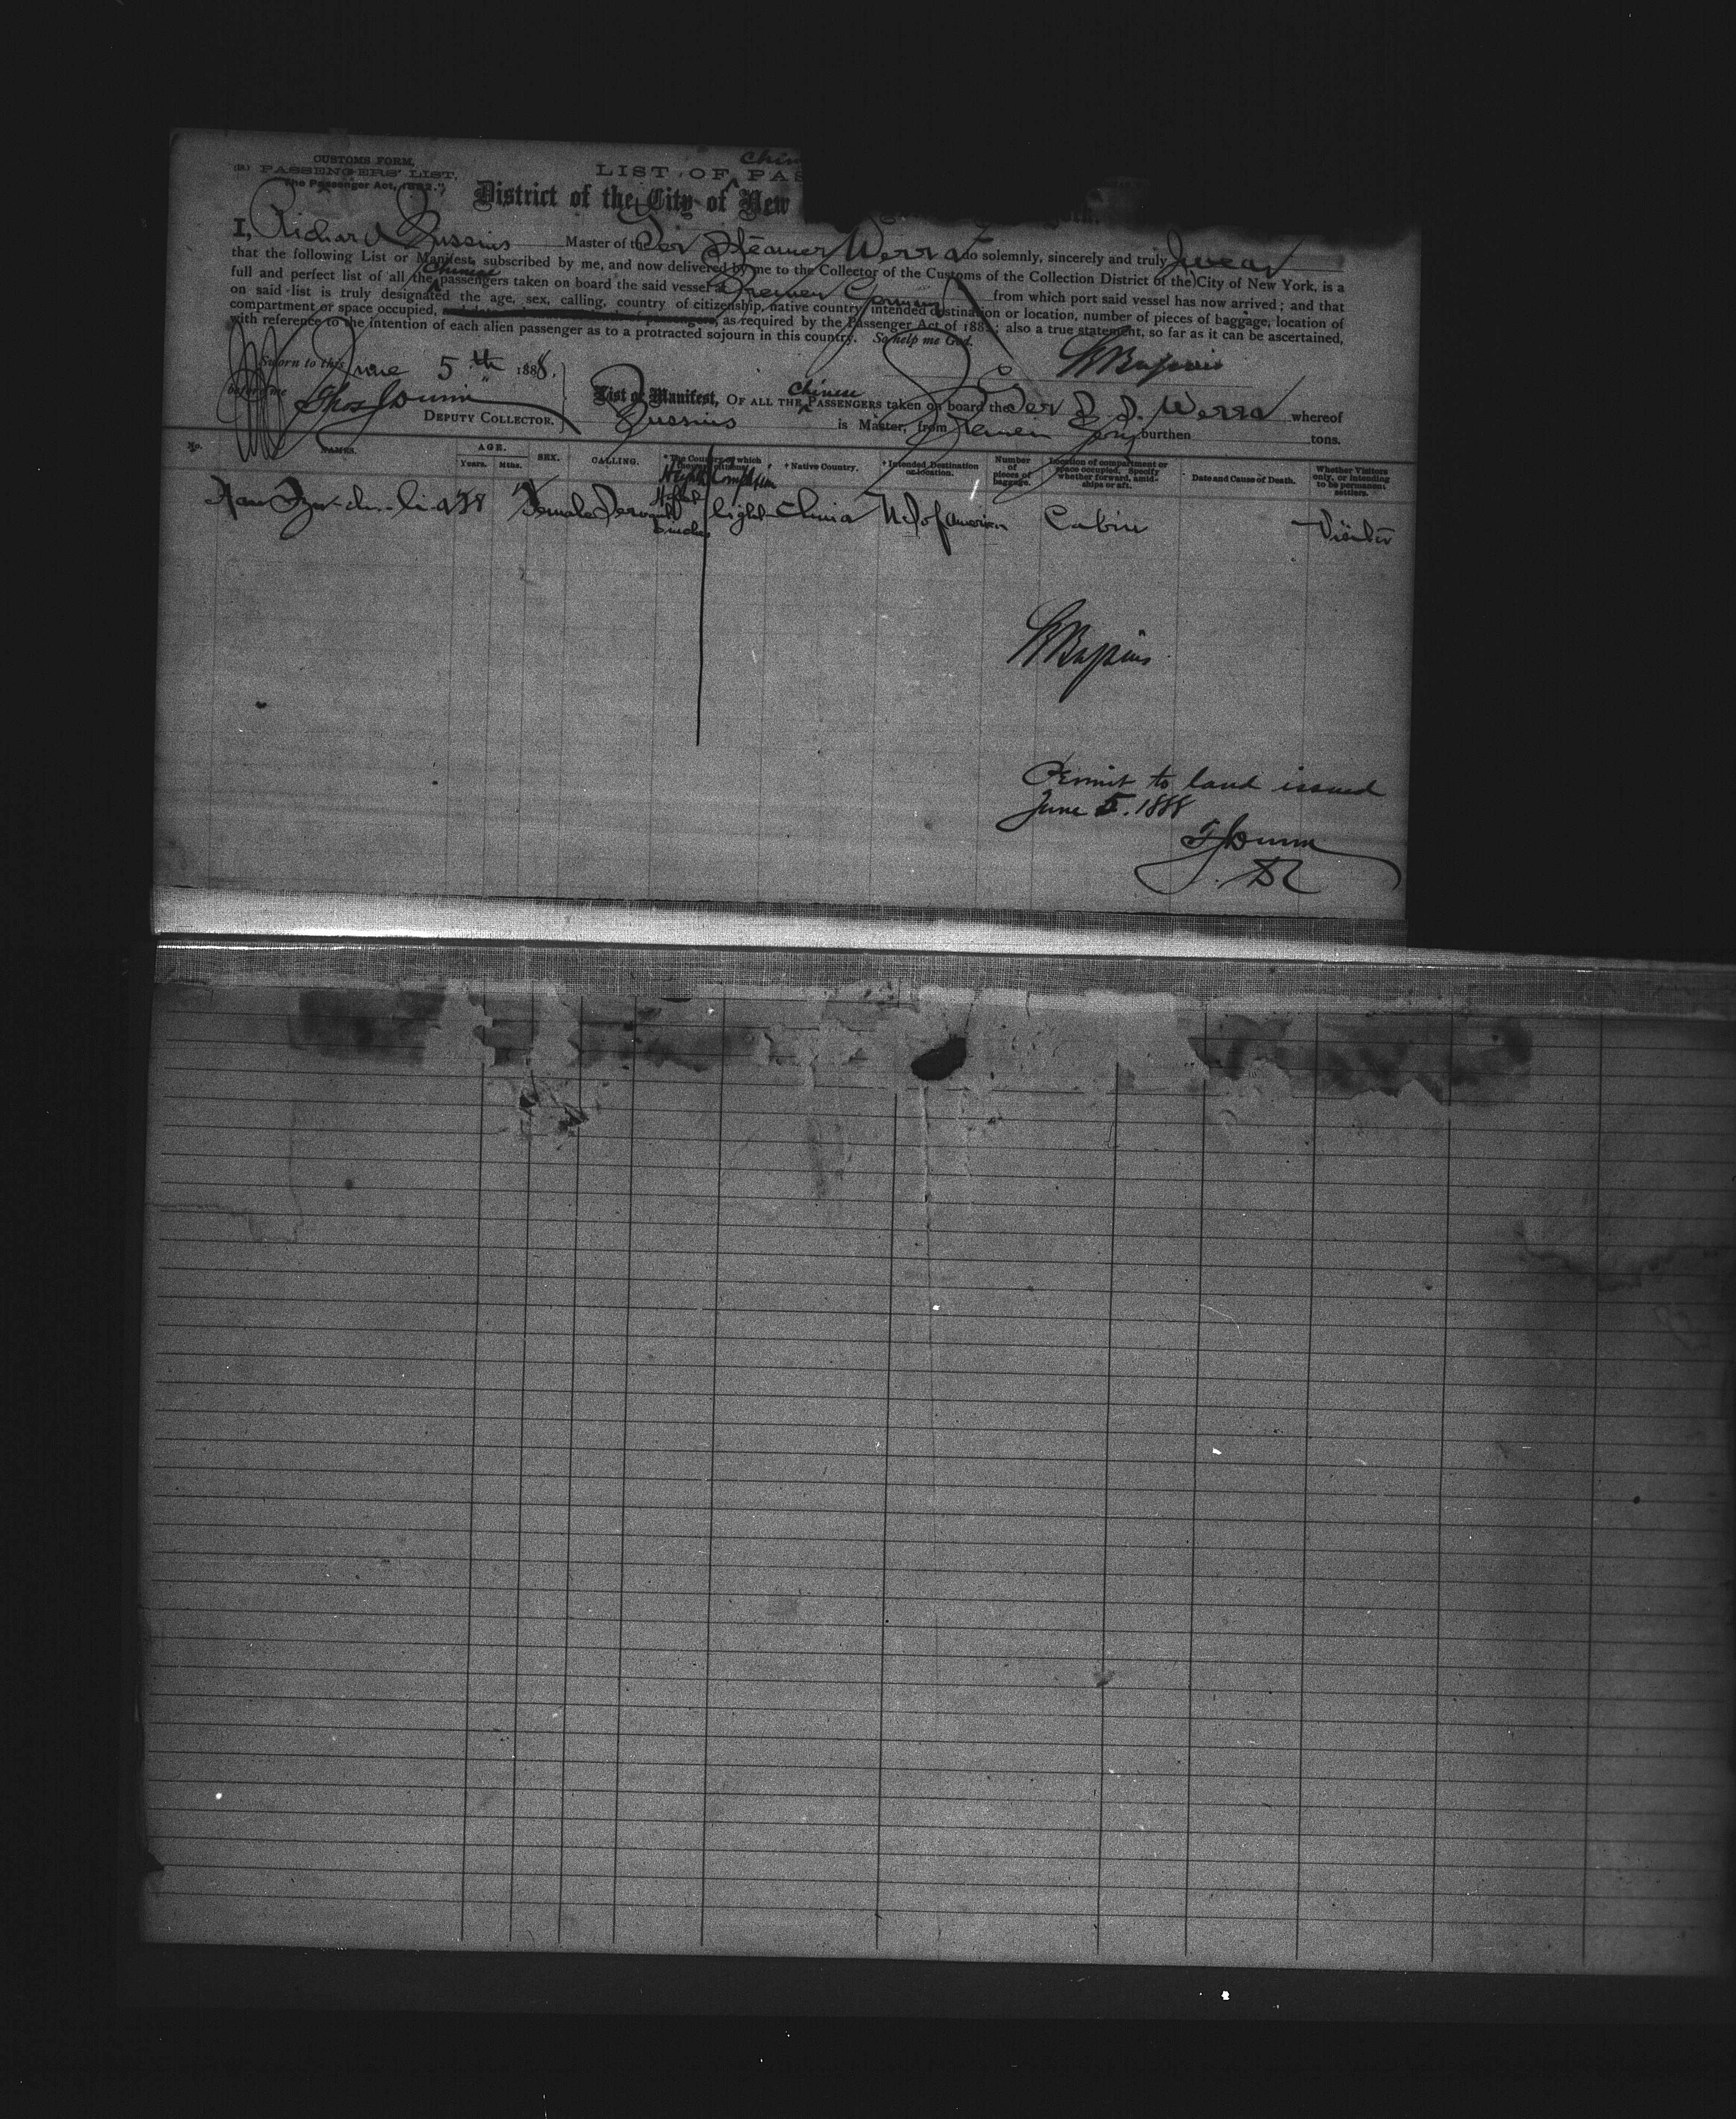 CUSTOMS FORM,
PASSENGERS' LIST.
"The Passenger Act, 1882."
Chin
LIST OF PAS
District of the City of New
I, Richard Bussius Master of the Ger Steamer Werra do solemnly, sincerely and truly Swear
that the following List or Manifest, subscribed by me, and now delivered by me to the Collector of the Customs of the Collection District of the City of New York, is a
full and perfect list of all the Chinese passengers taken on board the said vessel at Bremen Germany from which port said vessel has now arrived; and that
on said list is truly designated the age, sex, calling, country of citizenship, native country, intended destination or location, number of pieces of baggage, location of
compartment or space occupied, as required by the Passenger Act of 1882; also a true statement, so far as it can be ascertained,
with reference to the intention of each alien passenger as to a protracted sojourn in this country. So help me God.
Sworn to this June 5th 1888.
before me Thos J Dunn
DEPUTY COLLECTOR.
List or Manifest, OF ALL THE Chinese PASSENGERS taken on board the Ger S. S. Werra whereof
Bussius is Master, from Bremen Gery burthen tons.
No. NAMES. AGE. Years. Mths. SEX. CALLING. * The Country of which they are citizens. Height Complexion * Native Country. * Intended Destination or location. Number of pieces of baggage. Location of compartment or space occupied. Specify whether forward, amidships or aft. Date and Cause of Death. Whether Visitors only, or intending to be permanent settlers.
38 Female Servant light China U.S. of America Cabin Visitor
R Bussius
Permit to land issued
June 5. 1888
T J Dunn